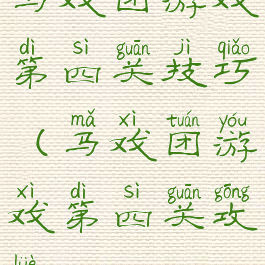 马戏团游戏
dì sì guān jì qiǎo
第四关技巧
mǎ xì tuán yóu
（马戏团游
xì dì sì guān gōng
戏第四关攻
lüè